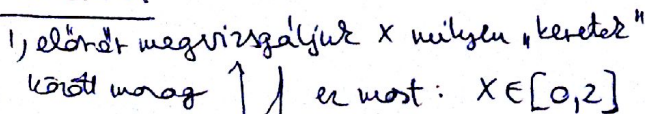 1, először megvizsgáljuk x milyen „keretek"
között mozog ez most: X ∈ [0,2]